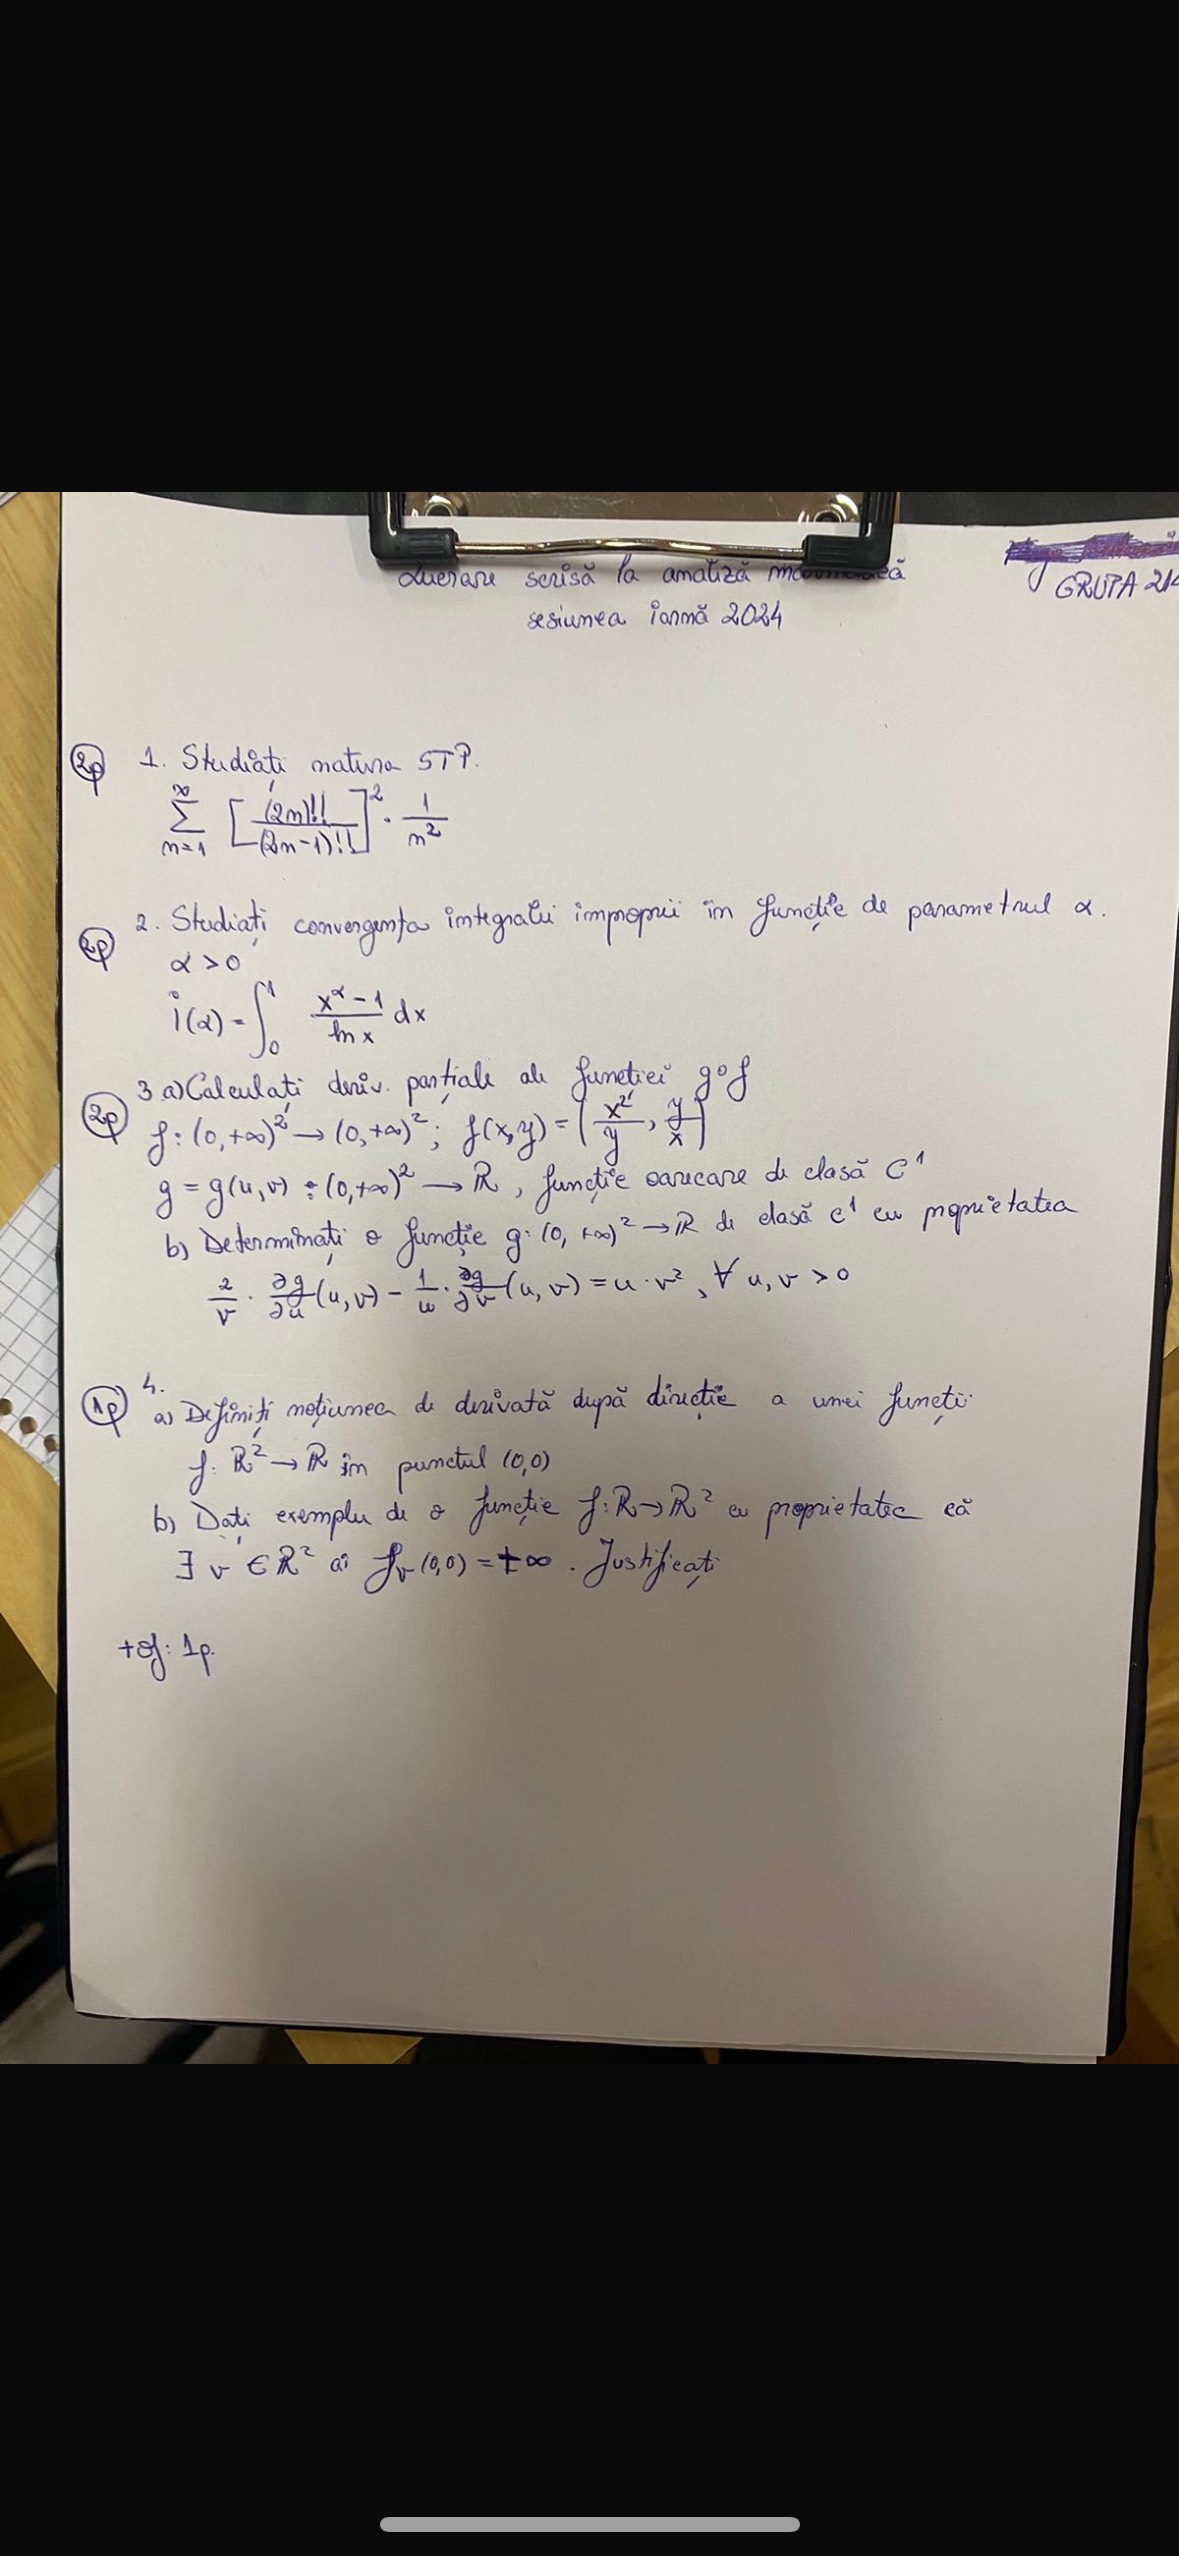 Lucrare scrisă la analiză
GRUPA
sesiunea iarnă 2024
2p 1. Studiați natura STP.
∑_{n=1}^{∞} [(2n)!!/(2n-1)!!]^2 · 1/n^2
2p 2. Studiați convergența integralei improprii în funcție de parametrul α.
α > 0
i(α) = ∫_0^1 (x^α - 1)/(ln x) dx
2p 3. a) Calculați deriv. parțiale ale funcției g∘f
f: (0,+∞)^2 → (0,+∞)^2; f(x,y) = (x^2/y, y/x)
g = g(u,v) : (0,+∞)^2 → ℝ, funcție oarecare de clasă C^1
b) Determinați o funcție g: (0, +∞)^2 → ℝ de clasă C^1 cu proprietatea
2/v · ∂g/∂u (u,v) - 1/u · ∂g/∂v (u,v) = u · v^2, ∀ u, v > 0
1p 4.
a) Definiți noțiunea de derivată după direcție a unei funcții
f: ℝ^2 → ℝ în punctul (0,0)
b) Dați exemplu de o funcție f: ℝ → ℝ^2 cu proprietatea că
∃ v ∈ ℝ^2 aî f_v (0,0) = +∞. Justificați
+of: 1p.